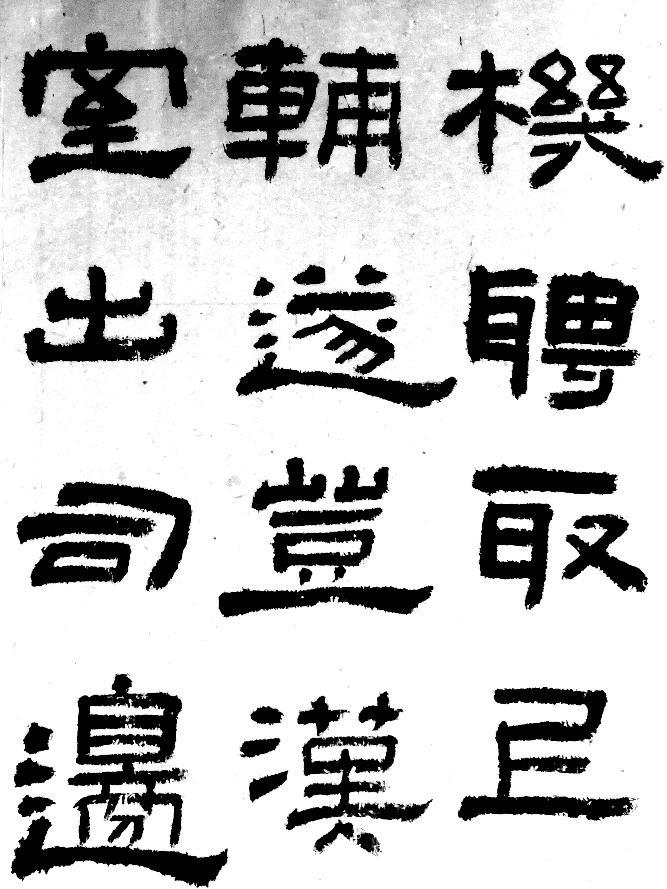 機聘取
輔遂豈漢
室出司邊